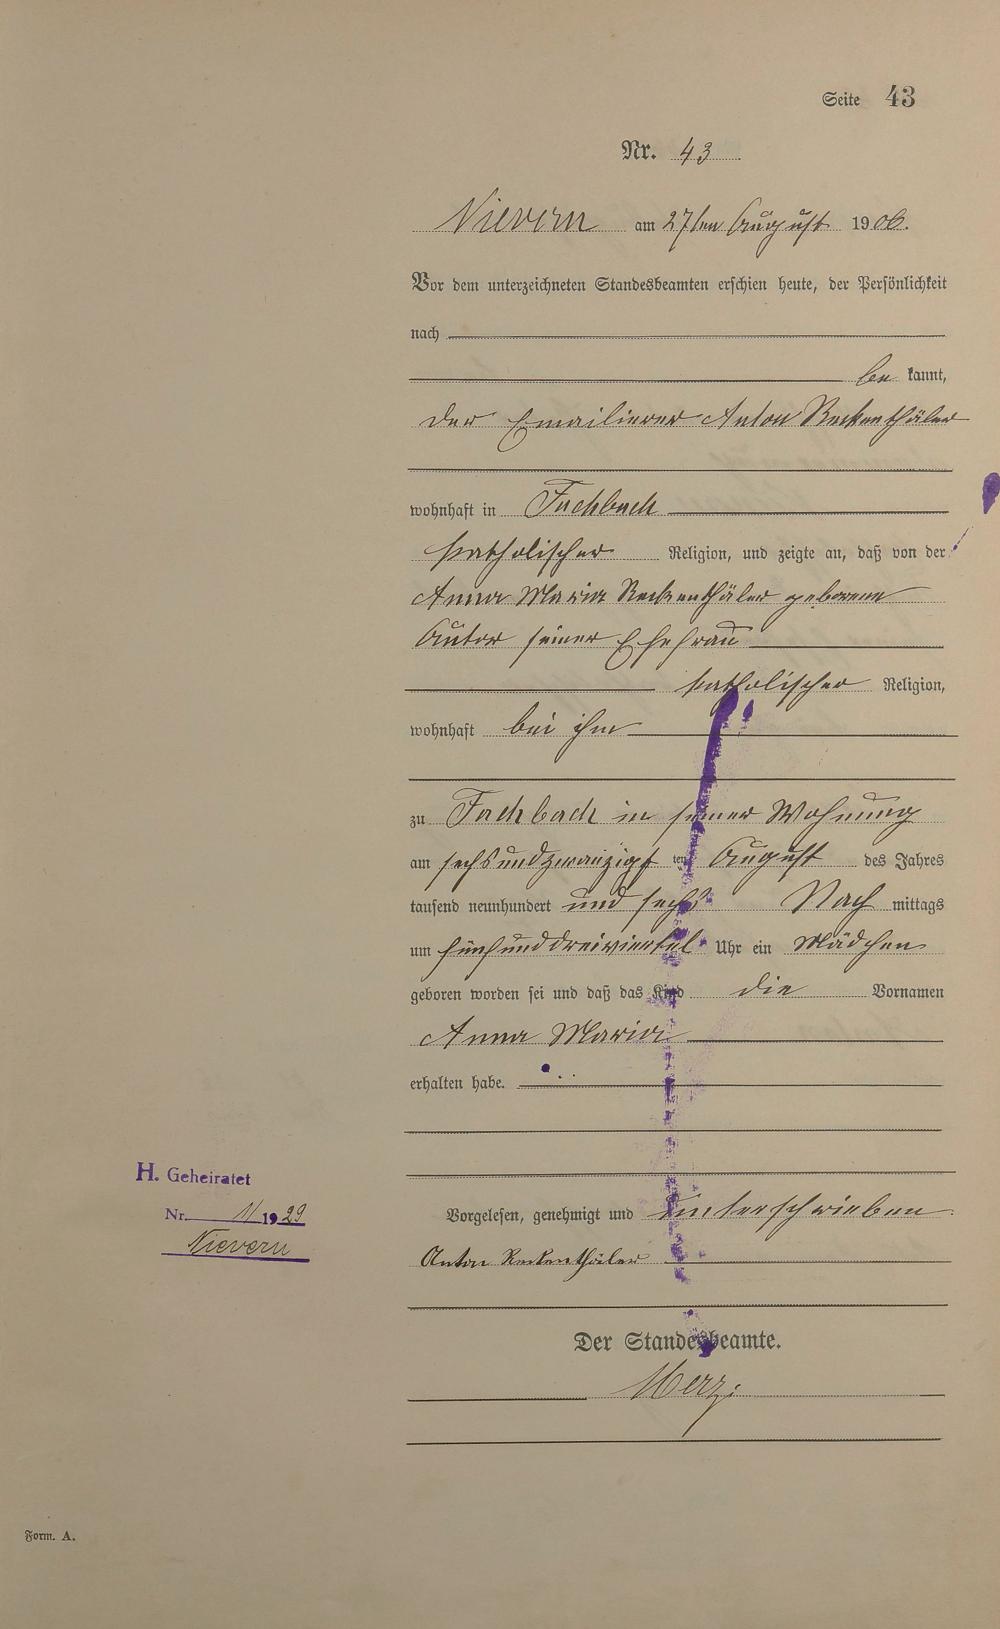 Seite 43
Nr. 43
Nievern am 27ten August 1906.
Vor dem unterzeichneten Standesbeamten erschien heute, der Persönlichkeit
nach
be kannt,
der Emailierer Anton Reckenthäler
wohnhaft in Fachbach
katholischer Religion, und zeigte an, daß von der
Anna Maria Reckenthäler geborene
Autor seiner Ehefrau
katholischer Religion,
wohnhaft bei ihm
zu Fachbach in seiner Wohnung
am sechsundzwanzigst ten August des Jahres
tausend neunhundert und sechs Nach mittags
um fünfunddreiviertel Uhr ein Mädchen
geboren worden sei und daß das Kind die Vornamen
Anna Maria
erhalten habe.
H. Geheiratet
Nr. 11/1929
Nievern
Vorgelesen, genehmigt und unterschrieben
Anton Reckenthäler
Der Standesbeamte.
Merz.
Form. A.